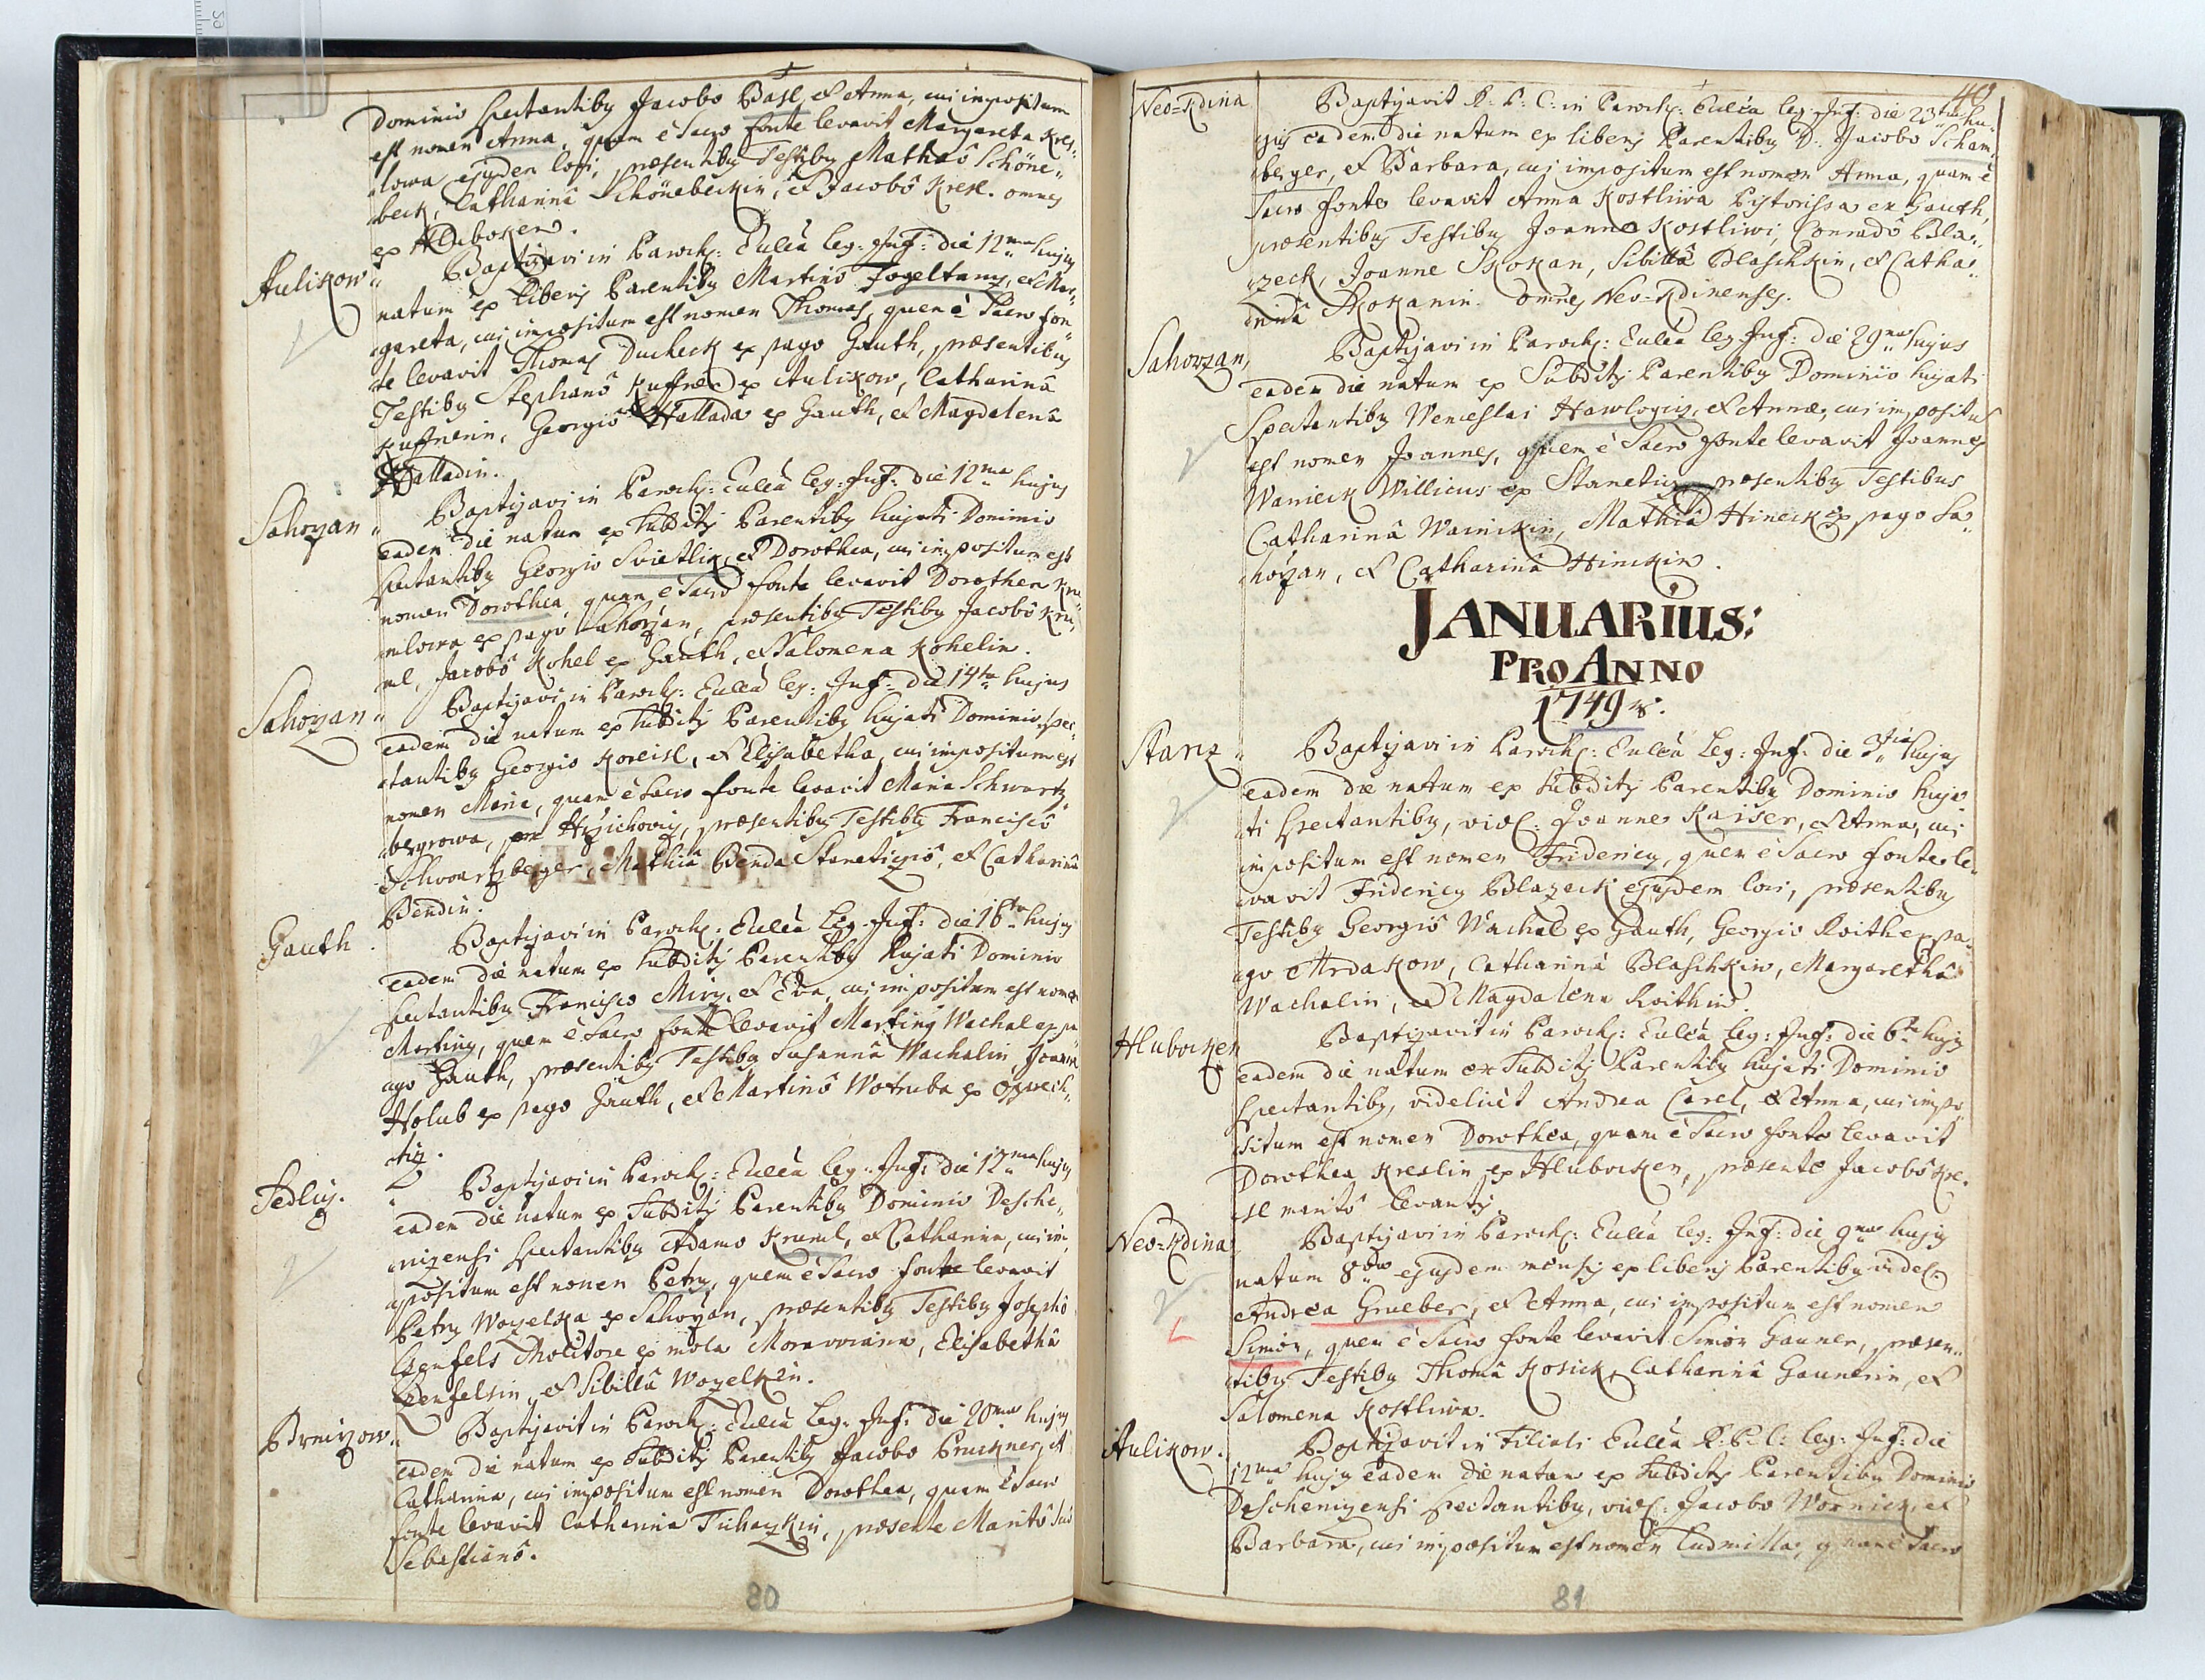 Dominio spectantiby Jacobo Basl, et Anna, cui impositum
est nomen Anna, quam è Sacro fonte levavit Margareta Kres-
lowa ejusdem loci, praesentiby Testiby Mathiâ Schöne-
beck, Catharinâ Schönebeckin, et Jacobô Kresl. omnes
ex Hluboken.
Aulikow
Baptizavi in Paroch: Eccl̃ia leg: Inf: die 12ma hujus
natum ex liberis Parentiby Martino Fogeltanz, et Mar-
gareta, cui impositum est nomen Thomas, quem è Sacro fon-
te levavit Thomas Ducheck ex pago Gauth, praesentibus
Testiby Stephanô Kuffner ex Aulikow, Catharinâ
Kuffnerin, Georgiô Hallada ex Gauth, et Magdalenâ
Halladin.
Sahorzan
Baptizavi in Paroch: Eccl̃ia leg: Inf: die 12ma hujus
eadem die natum ex Subditis Parentiby hujati Dominio
spectantiby Georgio Svietlik, et Dorothea, cui impositum est
nomen Dorothea, quam è Sacro fonte levavit Dorothea Kru-
mlowa ex pago Sahorzan, praesentiby Testiby Jacobô Kru-
ml, Jacobô Kohel ex Gauth, et Salomena Kohelin.
Sahorzan
Baptizavi in Paroch: Eccl̃ia leg: Inf: die 14ta hujus
eadem die natum ex Subditis Parentiby hujati Dominio spec-
tantiby Georgio Koreisl, et Elisabetha, cui impositum est
nomen Maria, quam è Sacro fonte levavit Maria Schwartz-
bergrowa, ex Hrzichowiz, praesentiby Testiby Franciscô
Schwartzberger, Mathiâ Benda Stanetiziô, et Catharinâ
Bendin.
Gauth
Baptizavi in Paroch: Eccl̃ia leg: Inf: die 16ta hujus
eadem die natum ex Subditis Parentiby hujati Dominio
spectantiby Francisco Mirz, et Eva, cui impositum est nomen
Martiny, quem è Sacro fonte levavit Martiny Wachal ex pa-
ago Gauth, praesentiby Testiby Susannâ Wachalin, Joanne
Holub ex pago Gauth, et Martinô Wotruba ex Opprech-
tiz.
Sedliz.
Baptizavi in Paroch: Eccl̃ia leg: Inf: die 17ma hujus
eadem die natum ex Subditis Parentiby Dominio Desche-
nizensi spectantiby Adamo Kruml, et Catharina, cui im-
positum est nomen Petry, quem è Sacro fonte levavit
Petry Wozelka ex Sahorzan, praesentiby Testiby Josephô
Ezenfels Molitore ex mola Morawiana, Elisabethâ
Ezenfelsin, et Sibillâ Wozelkin.
Brnizow
Baptizavit in Paroch: Eccl̃ia leg: Inf: die 20ma hujus
eadem die natum ex Subditis Parentiby Jacobo Pruckner, et
Catharina, cui impositum est nomen Dorothea, quam è Sacro
fonte levavit Catharina Tuhazkin, praesente Maritô suo
Sebastianô.
80
40
Neo=Kdina
Baptizavit R: P: C: in Paroch: Eccl̃ia leg: Inf: die 23tia hu-
jus eadem die natum ex liberis Parentiby D: Jacobo Scham-
berger, et Barbara, cui impositum est nomen Anna, quam è
Sacro fonte levavit Anna Kostliwa Pistorissa ex Gauth,
praesentiby Testiby Joanne Kostliwi, Conradô Bla-
zeck, Joanne Skokan, Sibillâ Blaschkin, et Catha-
rinâ Skokanin. omnes Neo=Kdinenses.
Sahorzan
Baptizavi in Paroch: Eccl̃ia leg: Inf: die 29na hujus
eadem die natum ex Subditis Parentiby Dominio hujati
spectantiby Wenceslai Hawlogiz, et Annae, cui impositũ
est nomen Joannes, quem è Sacro fonte levavit Joannes
Wanieck Willicus ex Stanetiz, praesentiby Testibus
Catharinâ Wainickin, Mathiâ Hineck ex pago Sa-
horzan, et Catharinâ Hinckin.
JANUARIUS:
PRO ANNO
1749
Stanz
Baptizavi in Paroch: Eccl̃ia leg: Inf: die 3tia hujus
eadem die natum ex Subditis Parentiby Dominio huja-
ti spectantiby, videl: Joanne Kaiser, et Anna, cui
impositum est nomen Fridericy, quem è Sacro fonte le-
vavit Fridericy Blazeck ejusdem loci, praesentiby
Testiby Georgiô Wachal ex Gauth, Georgio Roith ex pa-
go Mrdakow, Catharinâ Blaschkin, Margarethâ
Wachalin, et Magdalena Roithin.
Hluboken
Baptizavit in Paroch: Eccl̃ia leg: Inf: die 6ta hujus
eadem die natum ex Subditis Parentiby hujati Dominio
spectantiby, videlicèt Andrea Carel, et Anna, cui impo-
situm est nomen Dorothea, quam è Sacro fonte levavit
Dorothea Kreslin ex Hluboken, praesente Jacobô Kre-
sl maritô levantis.
Neo=Kdina
Baptizavi in Paroch: Eccl̃ia leg: Inf: die 9na hujus
natum 8va ejusdem mensis ex liberis Parentiby videl:
Andrea Grueber, et Anna, cui impositum est nomen
Simon, quem è Sacro fonte levavit Simon Gauner, praesen-
tiby Testiby Thomâ Kosick, Catharinâ Gaunerin, et
Salomena Kostliwa.
Aulikow.
Baptizavit in Filiali Eccl̃ia R: P: C: leg: Inf: die
12ma hujus eadem die natam ex Subditis Parentiby Dominio
Deschenizensi spectantiby, videl: Jacobo Wornick, et
Barbara, cui impositum est nomen Ludmilla, quam è Sacro
81